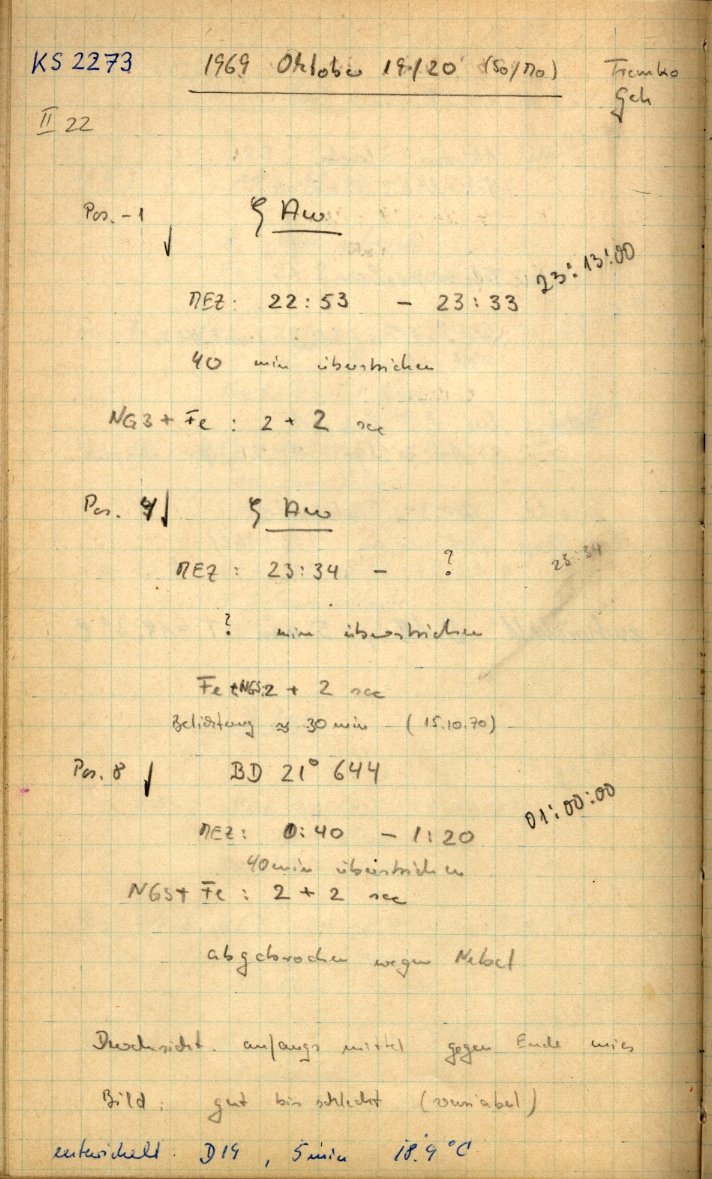 KS 2273 1969 Oktober 19/20 (So/Mo)
Geh
II 22
Pos. -1 ↓ ζ Aur
23:13:00
MEZ: 22:53 - 23:33
40 min überstrichen
NG3 + Fe : 2 + 2 sec
Pos. 4 ↓ ζ Aur
MEZ : 23:34 - ? 23:34
? min überstrichen
Fe + NG5: 2 + 2 sec
Belichtung ≈ 30 min - (15.10.70) -
Pos. 8 ↓ BD 21° 644
01:00:00
MEZ: 0:40 - 1:20
40 min überstrichen
NG5 + Fe : 2 + 2 sec
abgebrochen wegen Nebel
Durchsicht: anfangs mittel gegen Ende mies
Bild: gut bis schlecht (variabel)
entwickelt. D19, 5 min 18.9°C